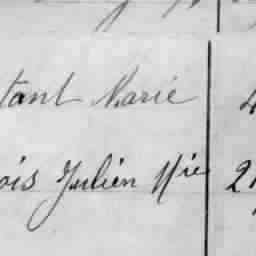 tant Marie 4
ois Julien Mie 2